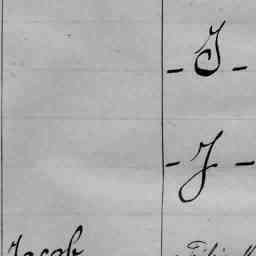 - I -
- J -
Jacob